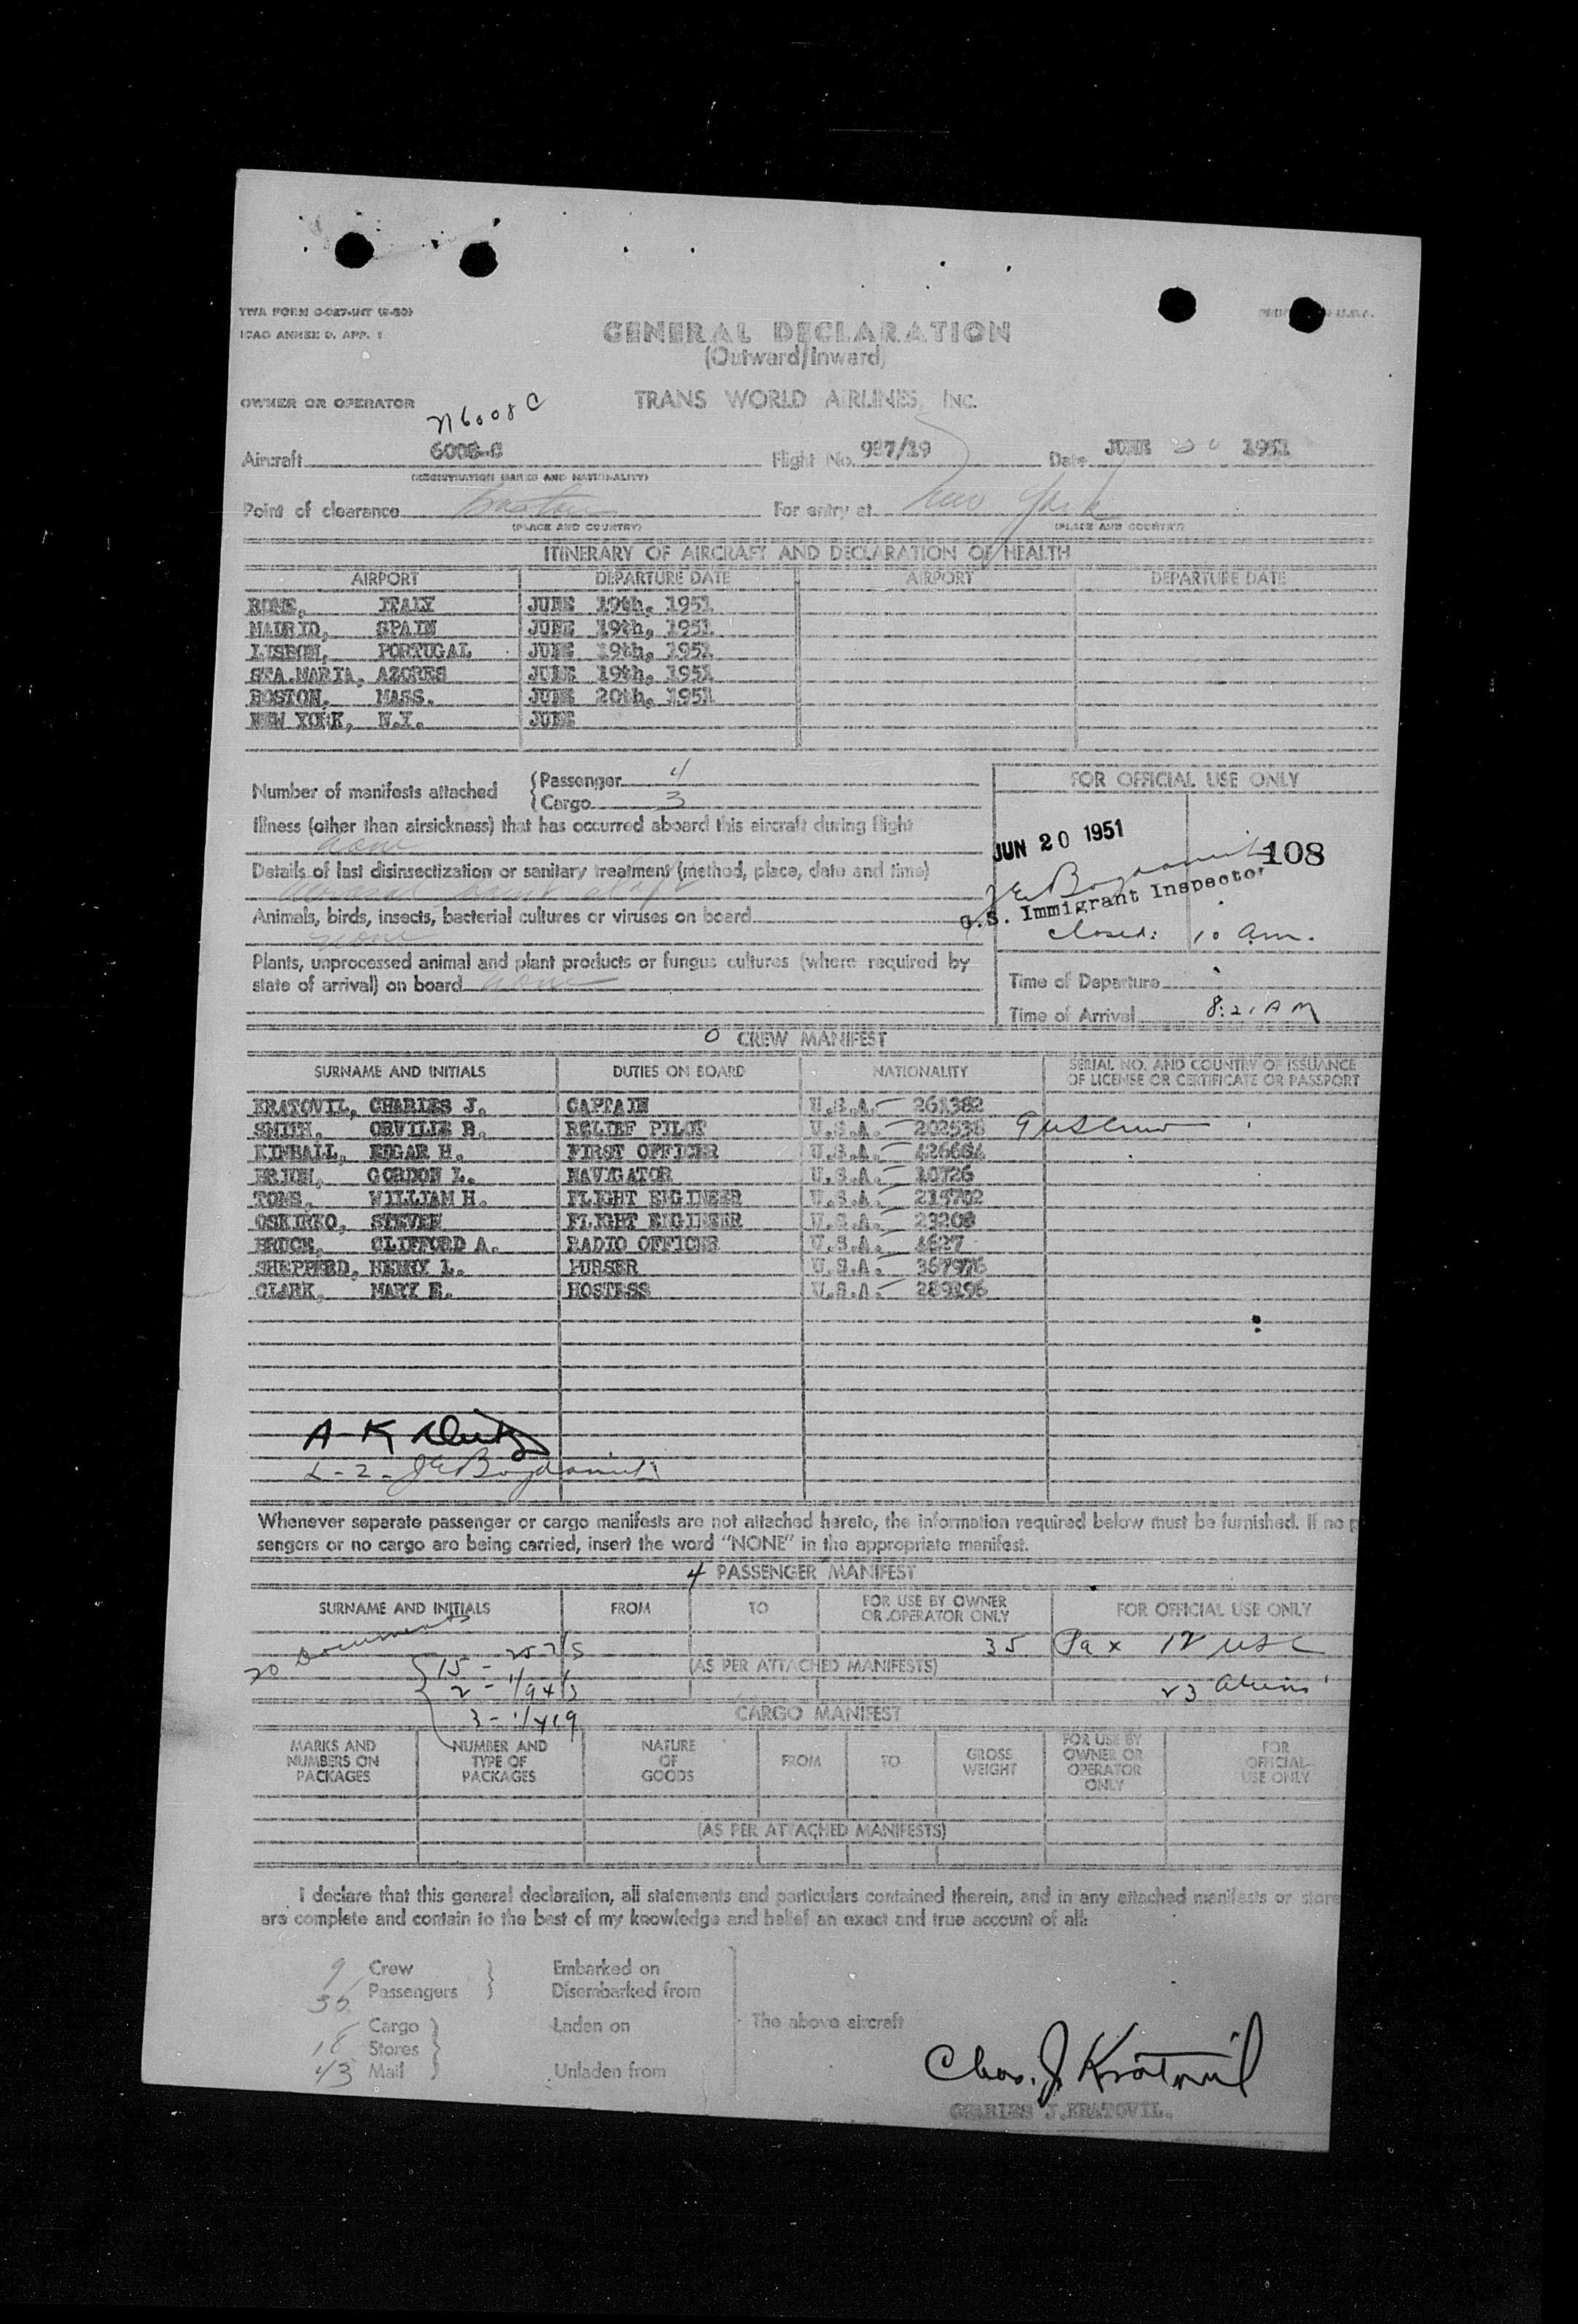 TWA FORM O-027-INT (6-50)
ICAO ANNEX 9, APP. 1
GENERAL DECLARATION
(Outward/Inward)
OWNER OR OPERATOR
TRANS WORLD AIRLINES, INC.
N6008C
Aircraft 6008-C Flight No. 997/19 Date JUNE 20 1951
(REGISTRATION MARKS AND NATIONALITY)
Point of clearance Boston For entry at New York
(PLACE AND COUNTRY) (PLACE AND COUNTRY)
ITINERARY OF AIRCRAFT AND DECLARATION OF HEALTH
AIRPORT DEPARTURE DATE AIRPORT DEPARTURE DATE
ROME, ITALY JUNE 19th, 1951
MADRID, SPAIN JUNE 19th, 1951
LISBON, PORTUGAL JUNE 19th, 1951
STA.MARIA, AZORES JUNE 19th, 1951
BOSTON, MASS. JUNE 20th, 1951
NEW YORK, N.Y. JUNE
Number of manifests attached
Passenger 4
Cargo 3
FOR OFFICIAL USE ONLY
Illness (other than airsickness) that has occurred aboard this aircraft during flight
none
JUN 20 1951
108
Details of last disinsectization or sanitary treatment (method, place, date and time)
U.S. Immigrant Inspector
Animals, birds, insects, bacterial cultures or viruses on board
none
closed: 10 am.
Plants, unprocessed animal and plant products or fungus cultures (where required by
state of arrival) on board none
Time of Departure
Time of Arrival 8:21 AM
0 CREW MANIFEST
SURNAME AND INITIALS DUTIES ON BOARD NATIONALITY SERIAL NO. AND COUNTRY OF ISSUANCE
OF LICENSE OR CERTIFICATE OR PASSPORT
KRATOVIL, CHARLES J. CAPTAIN U.S.A. 261382
SMITH, ORVILLE B. RELIEF PILOT U.S.A. 202538
KIMBALL, EDGAR H. FIRST OFFICER U.S.A. 426664
BRUUN, GORDON L. NAVIGATOR U.S.A. 10726
TOMS, WILLIAM H. FLIGHT ENGINEER U.S.A. 215702
OSKIRKO, STEVEN FLIGHT ENGINEER U.S.A. 23208
BRUCK, CLIFFORD A. RADIO OFFICER U.S.A. 4627
SHEPPERD, HENRY L. PURSER U.S.A. 367976
CLARK, MARY E. HOSTESS U.S.A. 289896
Whenever separate passenger or cargo manifests are not attached hereto, the information required below must be furnished. If no p
sengers or no cargo are being carried, insert the word "NONE" in the appropriate manifest.
4 PASSENGER MANIFEST
SURNAME AND INITIALS FROM TO FOR USE BY OWNER
OR OPERATOR ONLY FOR OFFICIAL USE ONLY
20 Documents
35 Pax 12 USC
(AS PER ATTACHED MANIFESTS)
23 aliens
CARGO MANIFEST
MARKS AND
NUMBERS ON
PACKAGES
NUMBER AND
TYPE OF
PACKAGES
NATURE
OF
GOODS
FROM
TO
GROSS
WEIGHT
FOR USE BY
OWNER OR
OPERATOR
ONLY
FOR
OFFICIAL
USE ONLY
(AS PER ATTACHED MANIFESTS)
I declare that this general declaration, all statements and particulars contained therein, and in any attached manifests or store
are complete and contain to the best of my knowledge and belief an exact and true account of all:
9 Crew Embarked on
35 Passengers Disembarked from
Cargo Laden on The above aircraft
18 Stores
43 Mail Unladen from
Chas. J. Kratovil
CHARLES J.KRATOVIL.